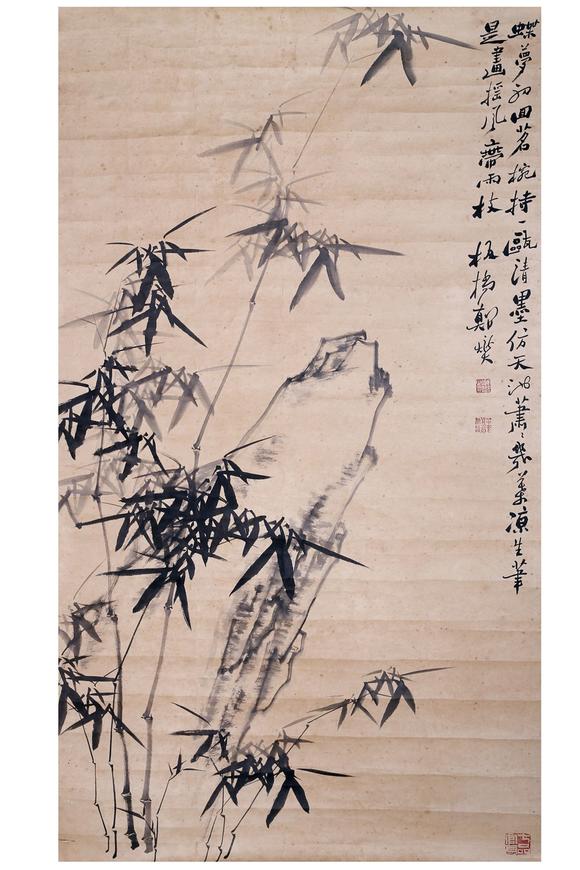 蝶夢初回茗椀持一甌清墨仿天池蕭〻幾葉凉生筆
是畫搖風帶雨枝 板橋鄭燮